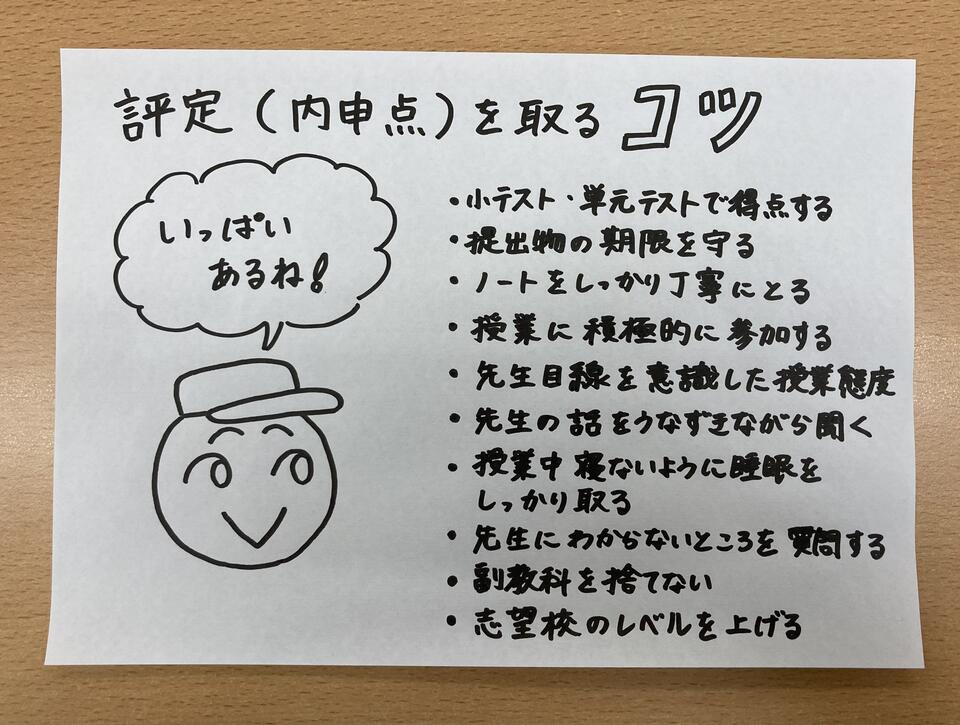 評定（内申点）を取るコツ
いっぱい
あるね！
・小テスト・単元テストで得点する
・提出物の期限を守る
・ノートをしっかり丁寧にとる
・授業に積極的に参加する
・先生目線を意識した授業態度
・先生の話をうなずきながら聞く
・授業中寝ないように睡眠を
しっかり取る
・先生にわからないところを質問する
・副教科を捨てない
・志望校のレベルを上げる